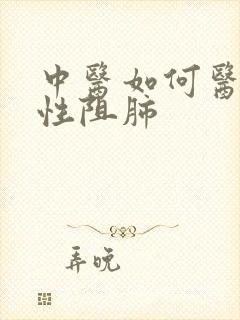 中醫如何醫
性阻肺
弄晚